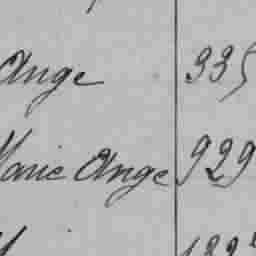 Ange 335
Marie Ange 929